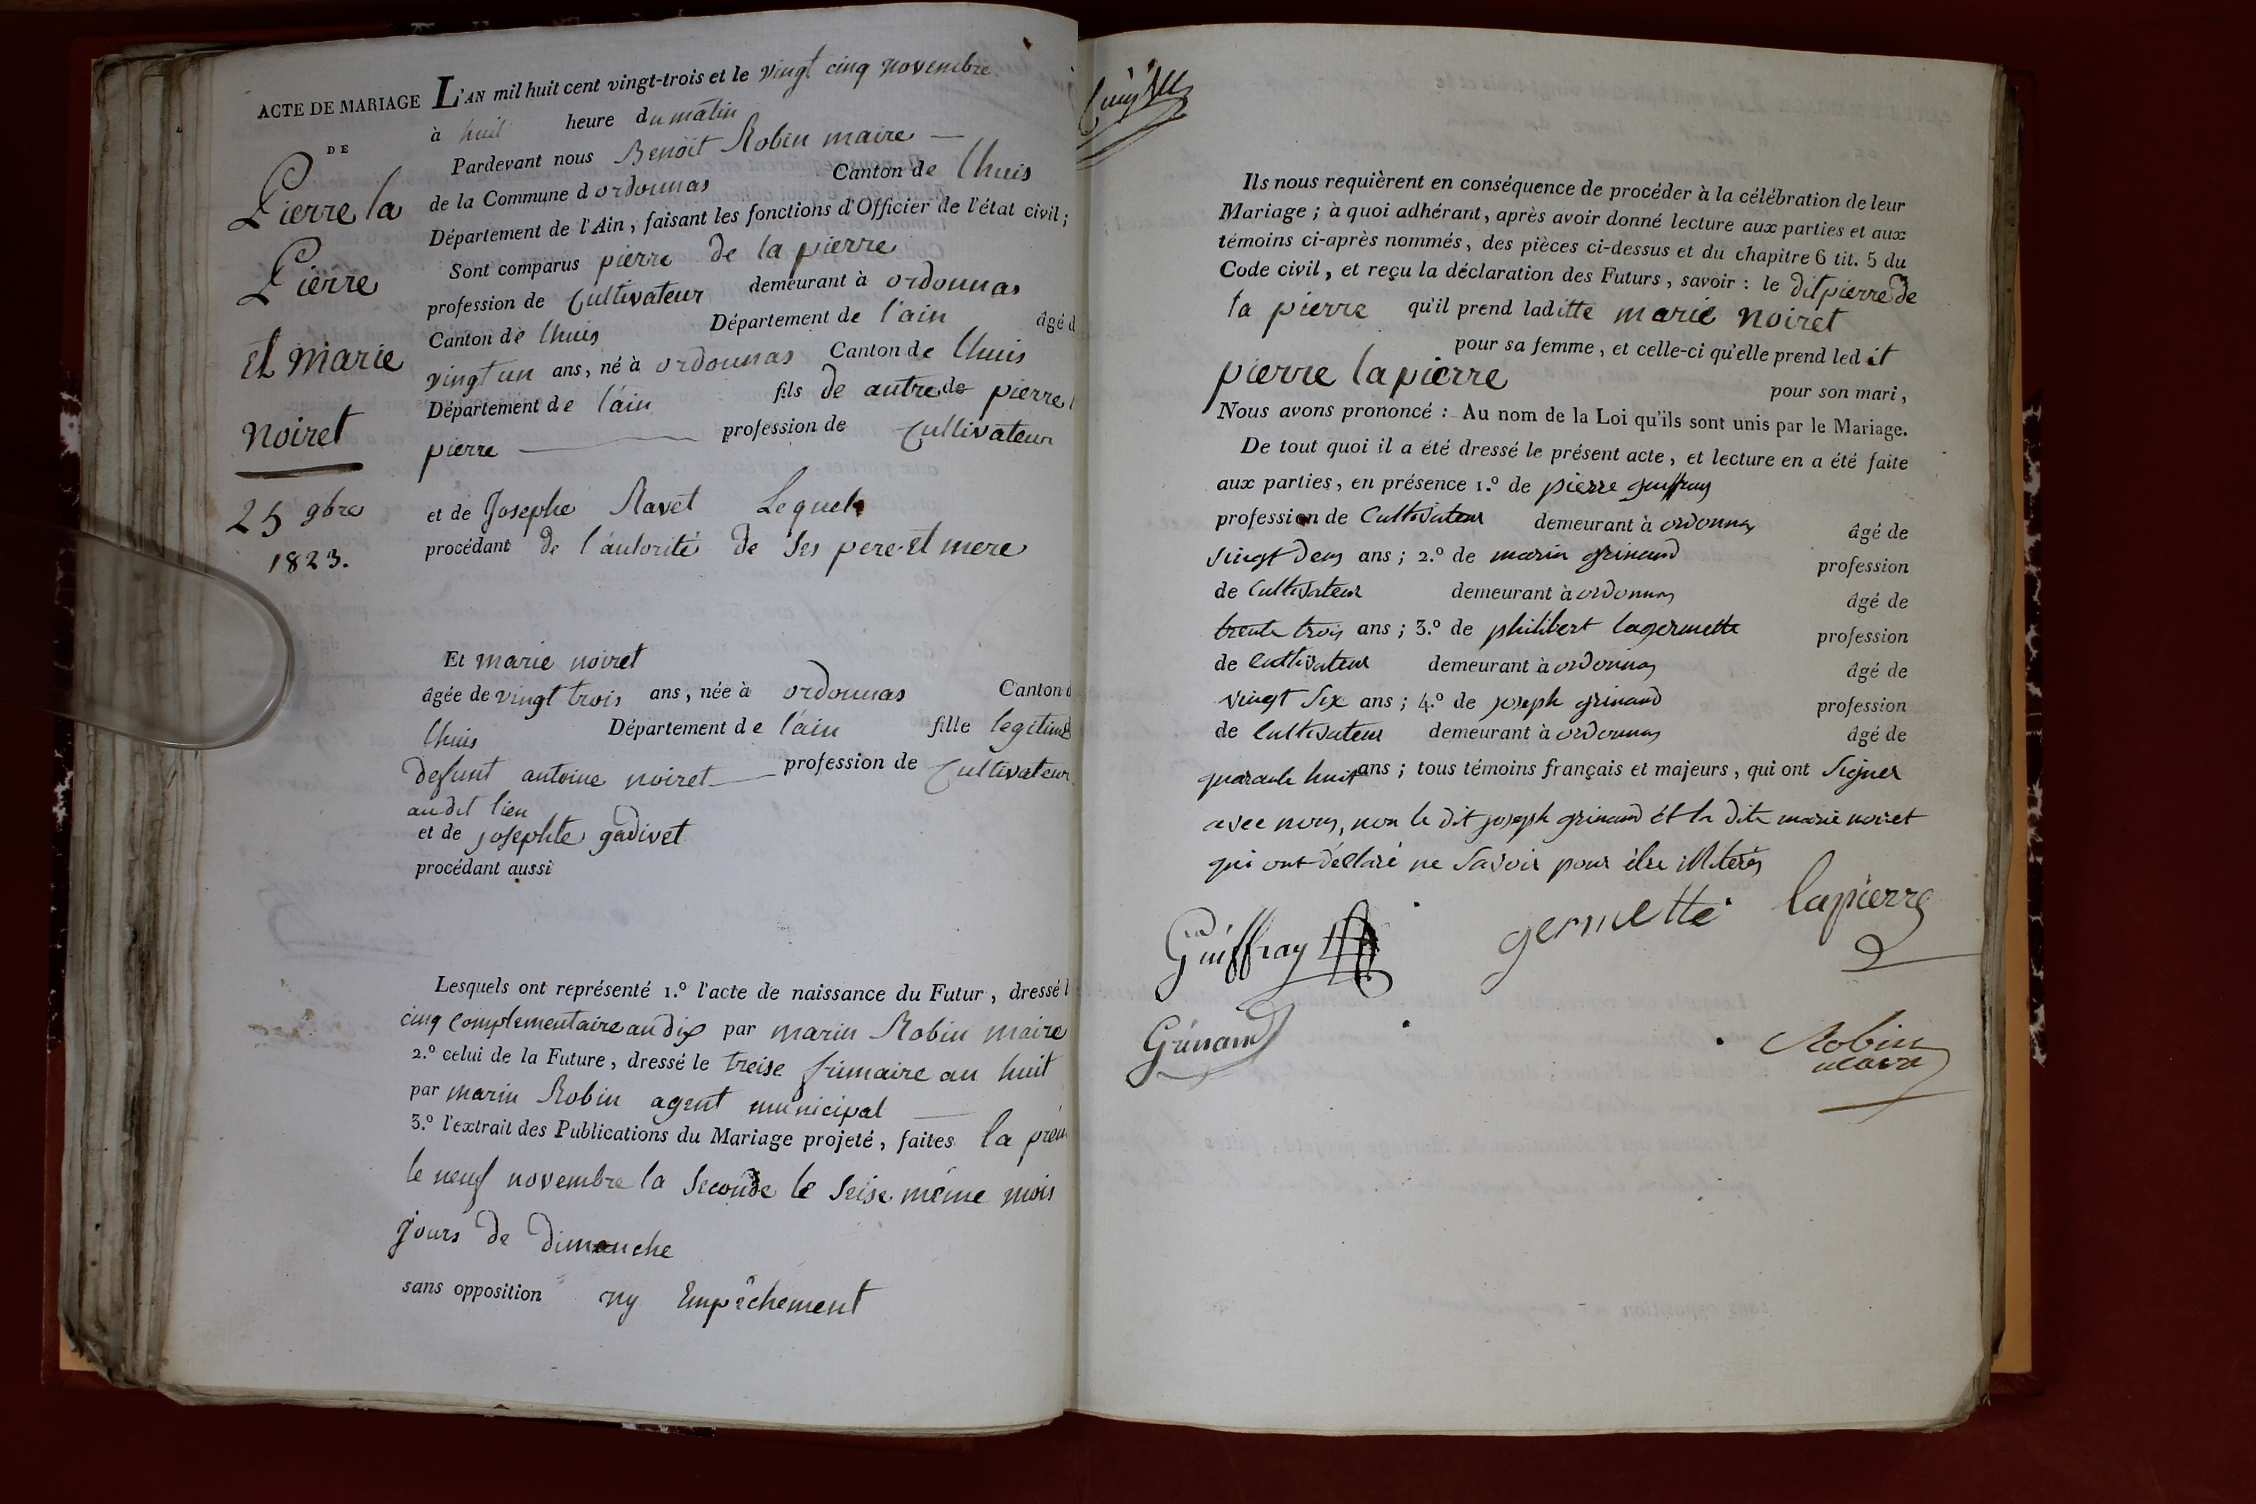 ACTE DE MARIAGE
DE
Pierre la
Pierre
et Marie
Noiret
25 9bre
1823.
L'AN mil huit cent vingt-trois et le vingt cinq novembre
à huit heure du matin
Pardevant nous Benoît Robin maire
de la Commune d'ordonnas Canton de lhuis
Département de l'Ain, faisant les fonctions d'Officier de l'état civil;
Sont comparus pierre de la pierre
profession de Cultivateur demeurant à ordonnas
Canton de lhuis Département de l'ain âgé d
vingt un ans, né à ordonnas Canton de lhuis
Département de l'ain fils de autre de pierre l
pierre profession de Cultivateur
et de Josephe Ravet Lequel
procédant de l'autorité de ses pere et mere
Et marie noiret
âgée de vingt trois ans, née à ordonnas Canton d
lhuis Département de l'ain fille legitime
defunt antoine noiret profession de Cultivateur
audit lieu
et de josephte gadivet
procédant aussi
Lesquels ont représenté 1.º l'acte de naissance du Futur, dressé l
cinq complementaire an dix par marin Robin maire
2.º celui de la Future, dressé le treise frimaire an huit
par marin Robin agent municipal
3.º l'extrait des Publications du Mariage projeté, faites la prem
le neuf novembre la seconde le seise même mois
jours de dimanche
sans opposition ny Empêchement
Ils nous requièrent en conséquence de procéder à la célébration de leur
Mariage; à quoi adhérant, après avoir donné lecture aux parties et aux
témoins ci-après nommés, des pièces ci-dessus et du chapitre 6 tit. 5 du
Code civil, et reçu la déclaration des Futurs, savoir: le dit pierre de
la pierre qu'il prend laditte marie noiret
pour sa femme, et celle-ci qu'elle prend ledit
pierre lapierre pour son mari,
Nous avons prononcé: Au nom de la Loi qu'ils sont unis par le Mariage.
De tout quoi il a été dressé le présent acte, et lecture en a été faite
aux parties, en présence 1.º de pierre guiffray
profession de Cultivateur demeurant à ordonnas âgé de
vingt deux ans; 2.º de marin grinand profession
de Cultivateur demeurant à ordonnas âgé de
trente trois ans; 3.º de philibert lagermette profession
de cultivateur demeurant à ordonnas âgé de
vingt six ans; 4.º de joseph grinand profession
de Cultivateur demeurant à ordonnas âgé de
quarante huit ans; tous témoins français et majeurs, qui ont signer
avec nous, non le dit joseph grinand et la dite marie noiret
qui ont déclaré ne savoir pour être illiterés
Guiffray germette lapierre
Grinand
Robin
maire